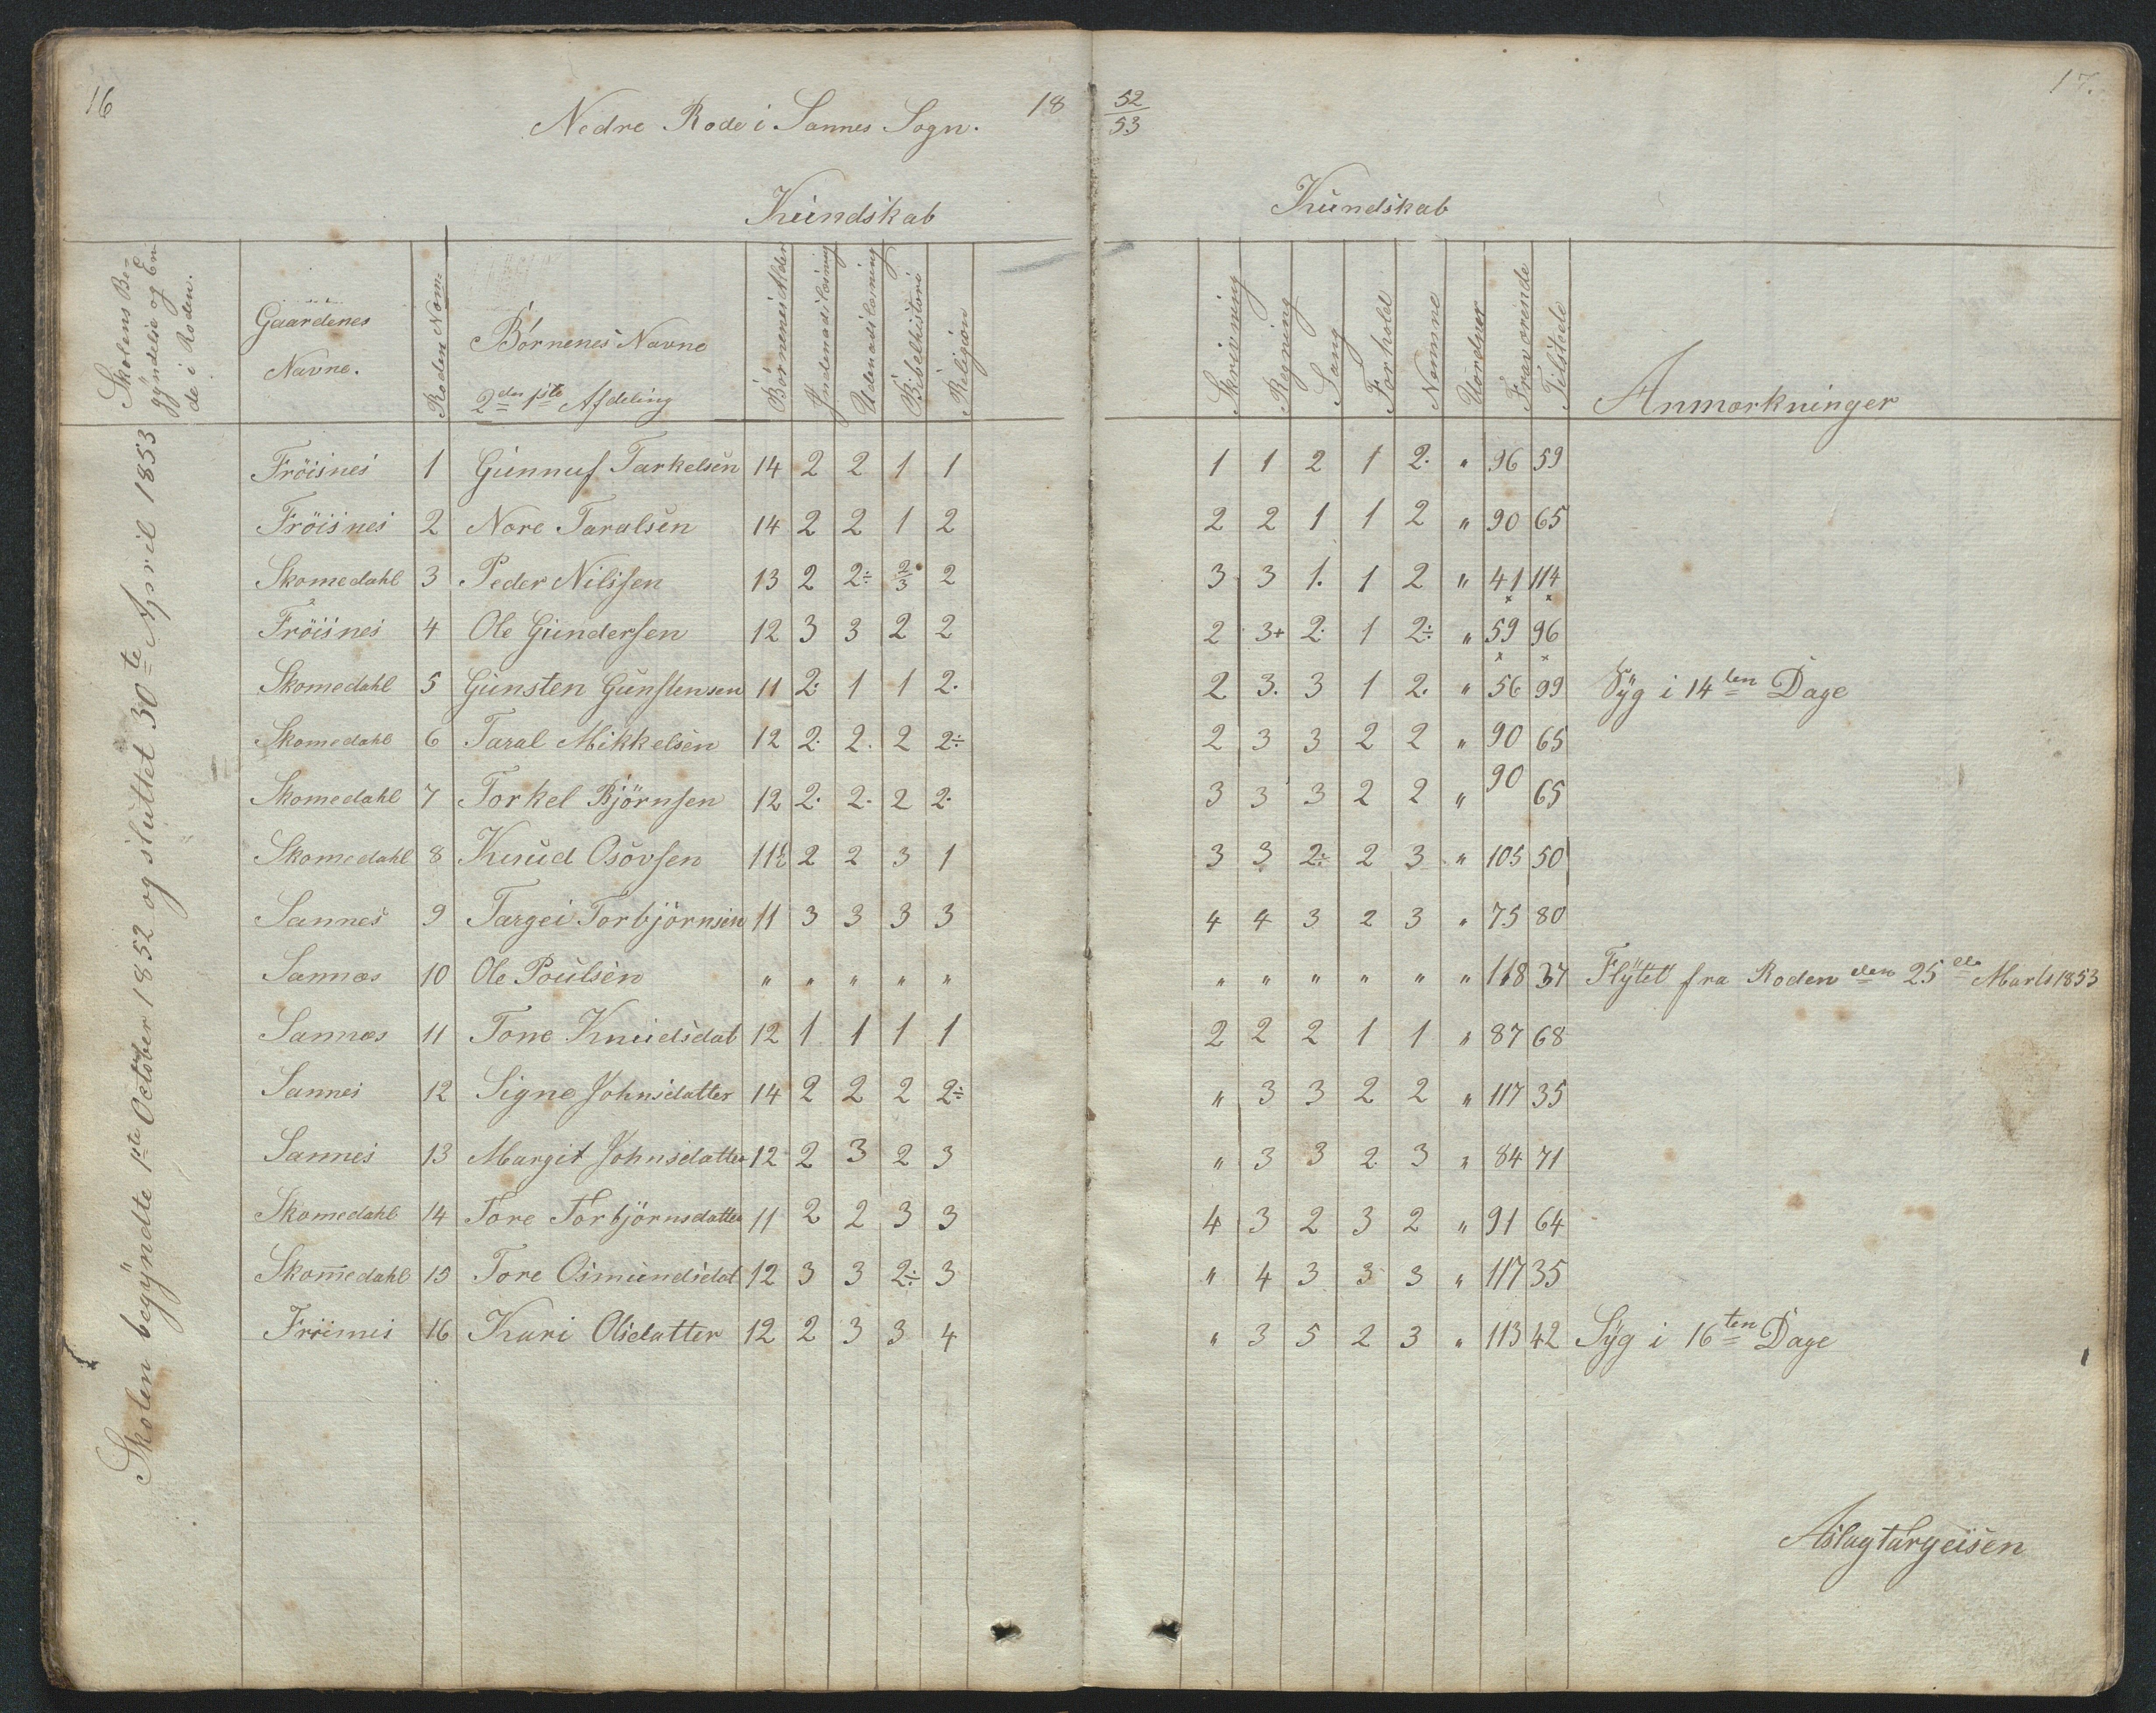 16
Nedre Rode i Sannes Sogn. 18
52
53
17.
Kundskab
Kundskab
Skolens Be-
gyndelse og En-
de i Roden.
Gaardenes
Navne.
Roden Nom:
Börnenes Navne
2den Afdeling
Börnenes Alder
Indenadslæsning
Udenadslæsning
Bibelhistorie
Religion
Skrivning
Regning
Sang
Forhold
Nemme
Uordner
Fraværende
Tilstede
Anmærkninger
Skolen begyndte 1ste October 1852 og sluttet 30te April 1853
Fröisnes 1 Gunnuf Tarkelsen 14 2 2 1 1 1 1 2 1 2. " 96 59
Fröisnes 2 Nore Taralsen 14 2 2 1 2 2 2 1 1 2 " 90 65
Skomedahl 3 Peder Nilssen 13 2 2÷ 2/3 2 3 3 1. 1 2 " 41 114
Fröisnes 4 Ole Gundersen 12 3 3 2 2 2 3+ 2. 1 2÷ " 59 96
Skomedahl 5 Gunsten Gunstensen 11 2. 1 1 2. 2 3. 3 1 2. " 56 99 Syg i 14ten Dage
Skomedahl 6 Taral Mikkelsen 12 2. 2. 2 2÷ 2 3 3 2 2 " 90 65
Skomedahl 7 Torkel Björnsen 12 2. 2. 2 2. 3 3 3 2 2 " 90 65
Skomedahl 8 Knud Osövsen 11½ 2 2 3 1 3 3 2÷ 2 3 " 105 50
Sannes 9 Targei Torbjörnsen 11 3 3 3 3 4 4 3 2 3 " 75 80
Sannes 10 Ole Poulsen " " " " " " " " " " " 118 37 Flytet fra Roden den 25de Marts 1853
Sannes 11 Tone Knudsdat 12 1 1 1 1 2 2 2 1 1 " 87 68
Sannes 12 Signe Johnsdatter 14 2 2 2 2÷ " 3 3 2 2 " 117 35
Sannes 13 Margit Johnsdatter 12 2 3 2 3 " 3 3 2 3 " 84 71
Skomedahl 14 Tore Torbjörnsdatter 11 2 2 3 3 4 3 2 3 2 " 91 64
Skomedahl 15 Tore Osmundsdat 12 3 3 2÷ 3 " 4 3 3 3 " 117 35
Fröisnes 16 Kari Olsdatter 12 2 3 3 4 " 3 5 2 3 " 113 42 Syg i 16ten Dage
Aslag targeisen